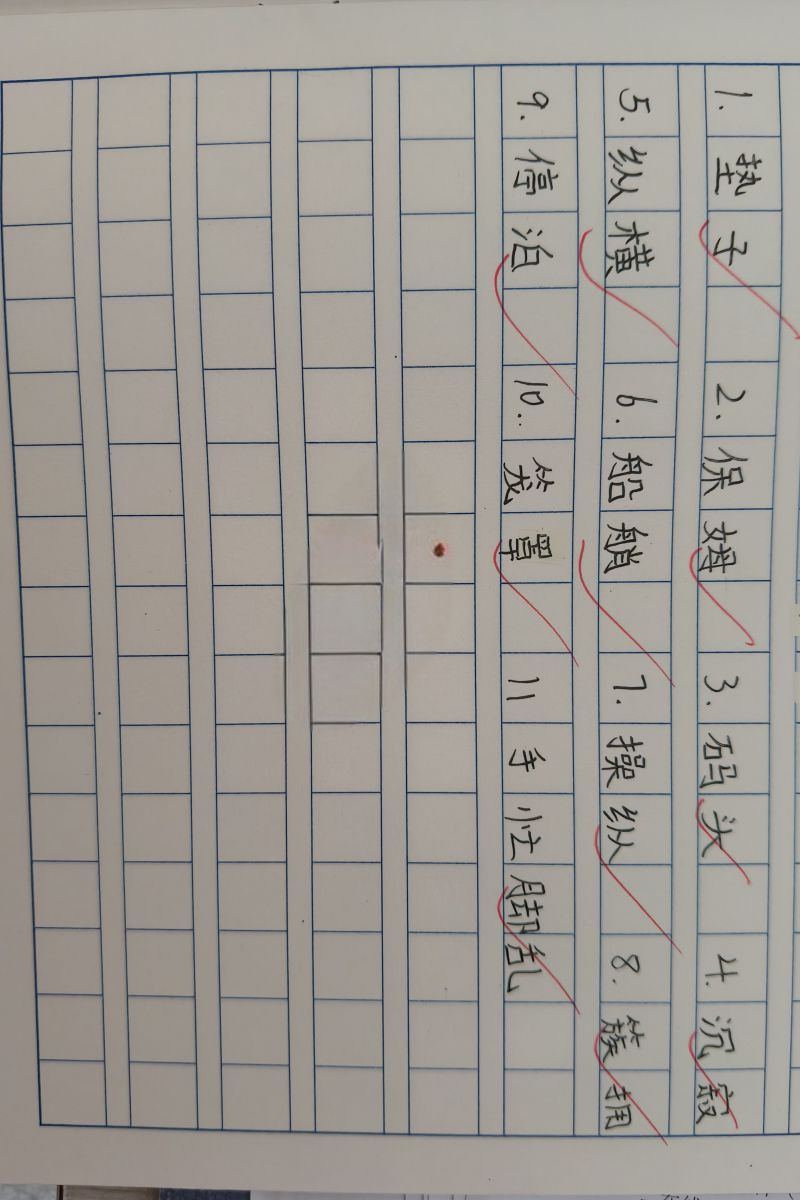 1. 垫子 2. 保姆 3. 码头 4. 沉寂
5. 纵横 6. 船艄 7. 操纵 8. 簇拥
9. 停泊 10.. 笼罩 11 手忙脚乱